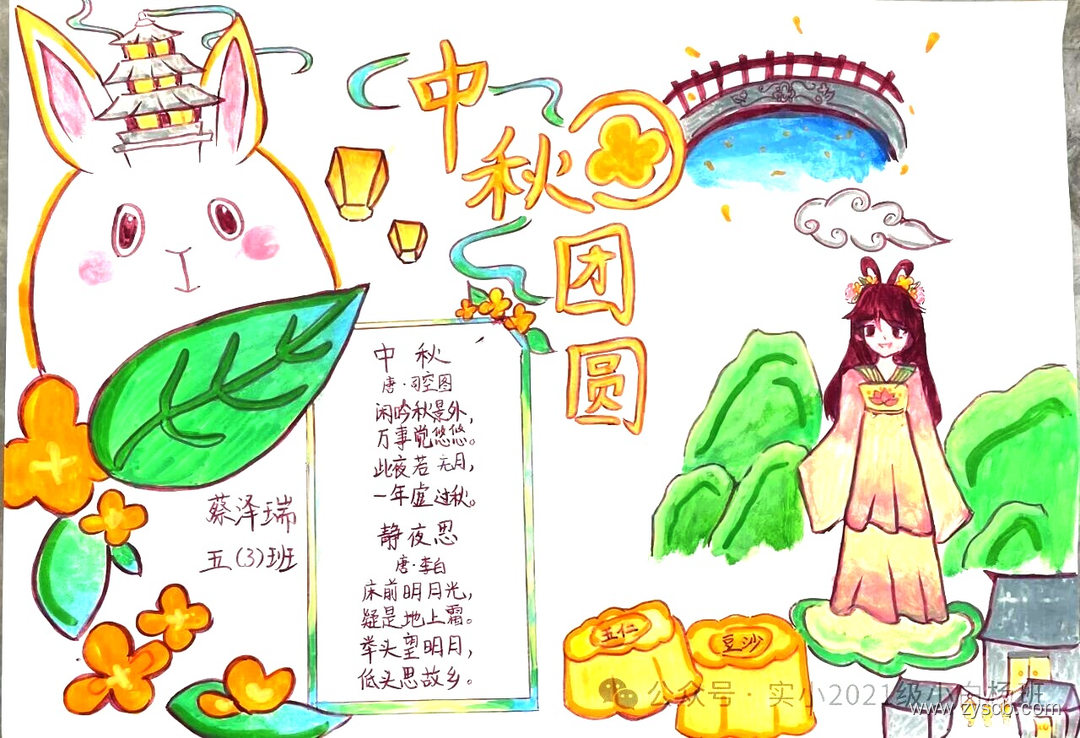 中秋
团圆
中秋
唐·司空图
闲吟秋景外，
万事觉悠悠。
此夜若无月，
一年虚过秋。
静夜思
唐·李白
床前明月光，
疑是地上霜。
举头望明月，
低头思故乡。
蔡泽瑞
五(3)班
五仁
豆沙
公众号·实小2021级小白杨班
www.zyscb.com